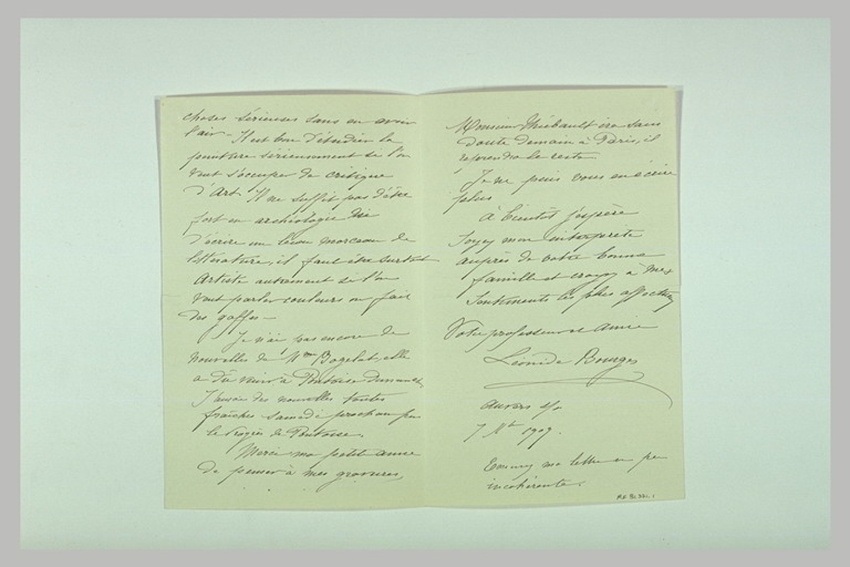 choses sérieuses sans en avoir
l'air – Il est bon d'étudier la
peinture sérieusement si l'on
veut s'occuper de critique
d'Art. Il ne suffit pas d'être
fort en archéologie ni
d'écrire un beau morceau de
littérature, il faut être surtout
Artiste autrement si l'on
veut parler couleurs on fait
des gaffes –
Je n'ai pas encore de
nouvelle de Mme Bogelot, elle
a dû venir à Pontoise Dimanche
J'aurai des nouvelles toutes
fraîches samedi prochain par
le Progrès de Pontoise.
Merci ma petite amie
de penser à mes gravures
Monsieur Thiébault ira sans
doute demain à Paris, il
reprendra le reste
Je ne puis vous en écrire
plus
à bientôt j'espère
Soyez mon interprète
auprès de votre bonne
famille et croyez à mes
sentiments les plus affectueux
Votre professeur et amie
Léonide Bourges
Auvers s/o
7 1909.
Excusez ma lettre un peu
incohérente.